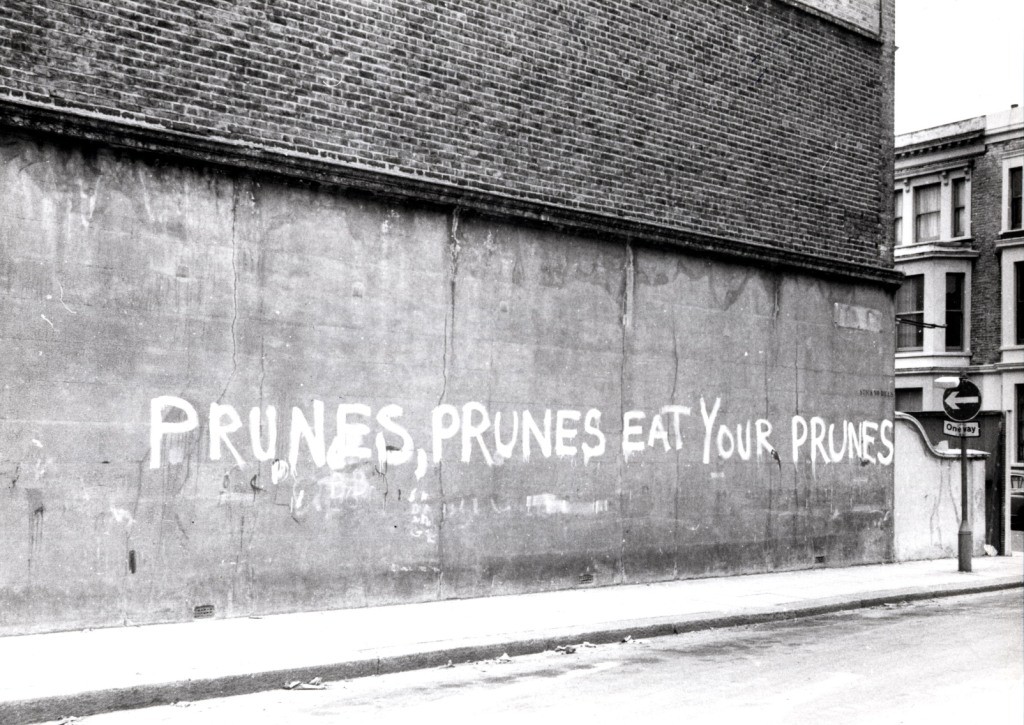 PRUNES, PRUNES EAT YOUR PRUNES
One way